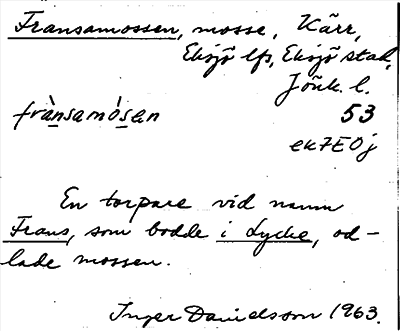 Fransamossen, mosse, Kärr,
Eksjö lfs, Eksjö stad,
Jönk. l.
frànsamósen 53
ek7E0j
En torpare vid namn
Frans, som bodde i Lycke, od-
lade mossen.
Inger Davidsson 1963.